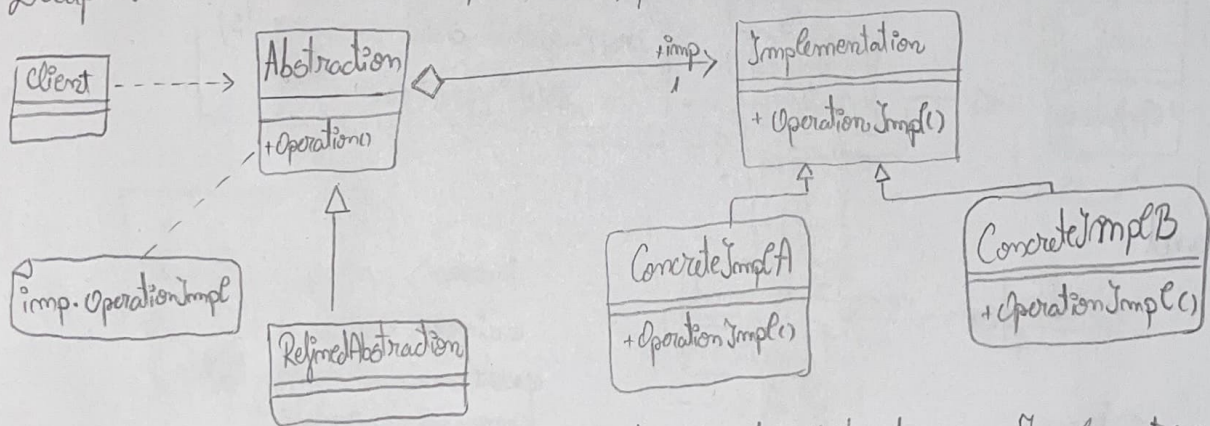 Client
Abstraction
+Operation()
+imp
1
Implementation
+ OperationImpl()
imp.OperationImpl
RefinedAbstraction
ConcreteImplA
+OperationImpl()
ConcreteImplB
+OperationImpl()